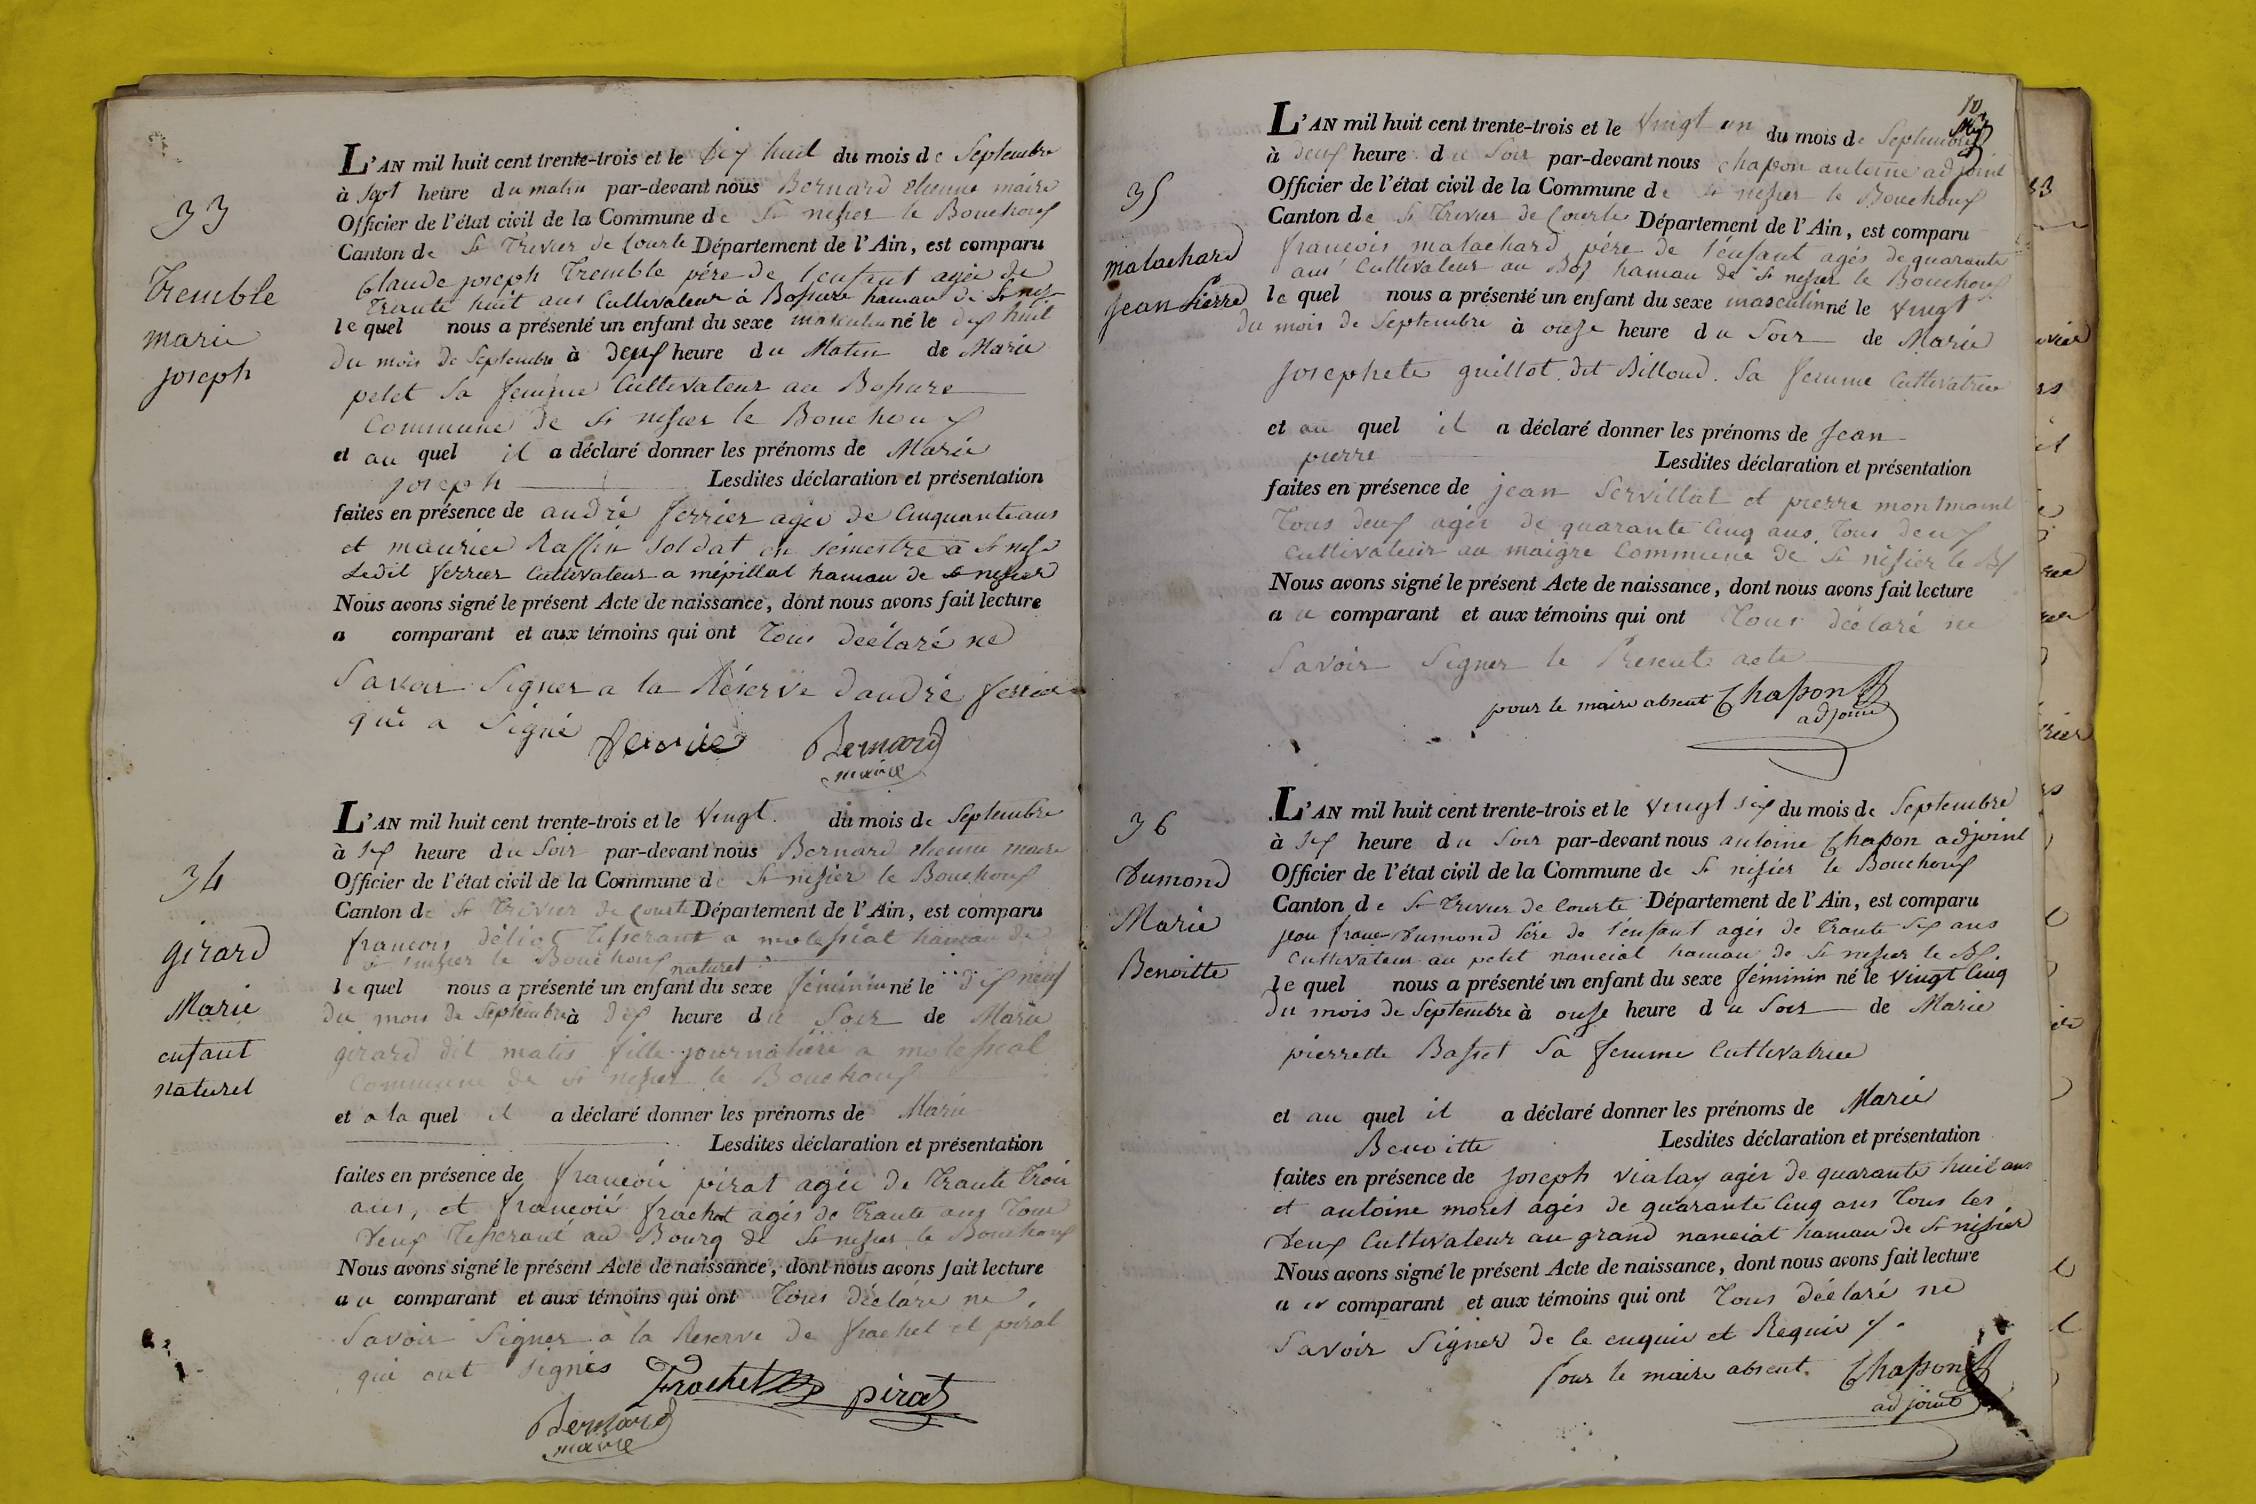 33
Tremble
marie
joseph
L'AN mil huit cent trente-trois et le Dix huit du mois de Septembre
à Sept heure du matin par-devant nous Bernard etienne maire
Officier de l'état civil de la Commune de St nisier le Bouchoux
Canton de St Trivier de Courte Département de l'Ain, est comparu
Claude joseph Tremble père de l'enfant agés de
Trante huit ans Cultivateur à Bossure hamau de St nisr
le quel nous a présenté un enfant du sexe masculin né le dix huit
du mois de Septembre à deux heure du Matin de Marie
petet Sa femme Cultivateur au Bossure
Commune de St nisier le Bouchoux
et au quel il a déclaré donner les prénoms de Marie
joseph Lesdites déclaration et présentation
faites en présence de andré ferrier agés de Cinquante ans
et maurice Raffin Soldat en sémestre a St nisr
Ledit ferrier Cultivateur a mépillat hamau de St nisier
Nous avons signé le présent Acte de naissance, dont nous avons fait lecture
a comparant et aux témoins qui ont Tous déclaré ne
Savoir Signer a la Réserve dandré ferrier
qui a Signé ferrier Bernard
maire
34
girard
Marie
enfant
naturel
L'AN mil huit cent trente-trois et le Vingt du mois de Septembre
à Six heure du Soir par-devant nous Bernard etienne maire
Officier de l'état civil de la Commune de St nisier le Bouchoux
Canton de St Trivier de Courte Département de l'Ain, est comparu
francois déliat Tisserant a molessiat hamau de
St nisier le Bouchoux naturel
le quel nous a présenté un enfant du sexe féminin né le dix neuf
du mois de Septembre à dix heure du Soir de Marie
girard dit matis fille journalière a molessiat
Commune de St nisier le Bouchoux
et a la quel il a déclaré donner les prénoms de Marie
Lesdites déclaration et présentation
faites en présence de francois pirat agés de Trante Trois
ans, et francois frachet agés de Trante ans Tous
deux Tisserant au Bourg de St nisier le Bouchoux
Nous avons signé le présent Acte de naissance, dont nous avons fait lecture
au comparant et aux témoins qui ont Tous déclaré ne
Savoir Signer a la Reserve de frachet et pirat
qui ont Signés Frachet pirat
Bernard
maire
10
35
malachard
jean Pierre
L'AN mil huit cent trente-trois et le Vingt un du mois de Septembre
à deux heure du Soir par-devant nous chapon antoine adjoint
Officier de l'état civil de la Commune de St nisier le Bouchoux
Canton de St Trivier de Courte Département de l'Ain, est comparu
francois malachard père de l'enfant agés de quarante
ans Cultivateur au Bos hamau de St nisier le Bouchoux
le quel nous a présenté un enfant du sexe masculin né le Vingt
du mois de Septembre à onze heure du Soir de Marie
josephete guillot dit Billoud Sa femme Cultivatrice
et au quel il a déclaré donner les prénoms de Jean
pierre Lesdites déclaration et présentation
faites en présence de jean Servillat et pierre montmoint
Tous deux agés de quarante Cinq ans Tous deux
Cultivateur au maigre Commune de St nisier le Bx
Nous avons signé le présent Acte de naissance, dont nous avons fait lecture
au comparant et aux témoins qui ont Tous déclaré ne
Savoir Signer le Present acte
pour le maire absent Chapon
adjoint
36
Dumond
Marie
Benoitte
L'AN mil huit cent trente-trois et le vingt six du mois de Septembre
à Six heure du Soir par-devant nous antoine Chapon adjoint
Officier de l'état civil de la Commune de St nisier le Bouchoux
Canton de St Trivier de Courte Département de l'Ain, est comparu
jean franc Dumond Père de l'enfant agés de Trante Six ans
Cultivateur au petit nanciat hamau de St nisier le Bx.
le quel nous a présenté un enfant du sexe féminin né le vingt Cinq
du mois de Septembre à onze heure du Soir de Marie
pierrette Basset Sa femme Cultivatrice
et au quel il a déclaré donner les prénoms de Marie
Benoitte Lesdites déclaration et présentation
faites en présence de joseph vialay agés de quarante huit ans
et antoine morel agés de quarante Cinq ans Tous les
deux Cultivateur au grand nanciat hamau de St nisier
Nous avons signé le présent Acte de naissance, dont nous avons fait lecture
au comparant et aux témoins qui ont Tous déclaré ne
Savoir Signer de le enquis et Requis
Pour le maire absent. Chapon
adjoint